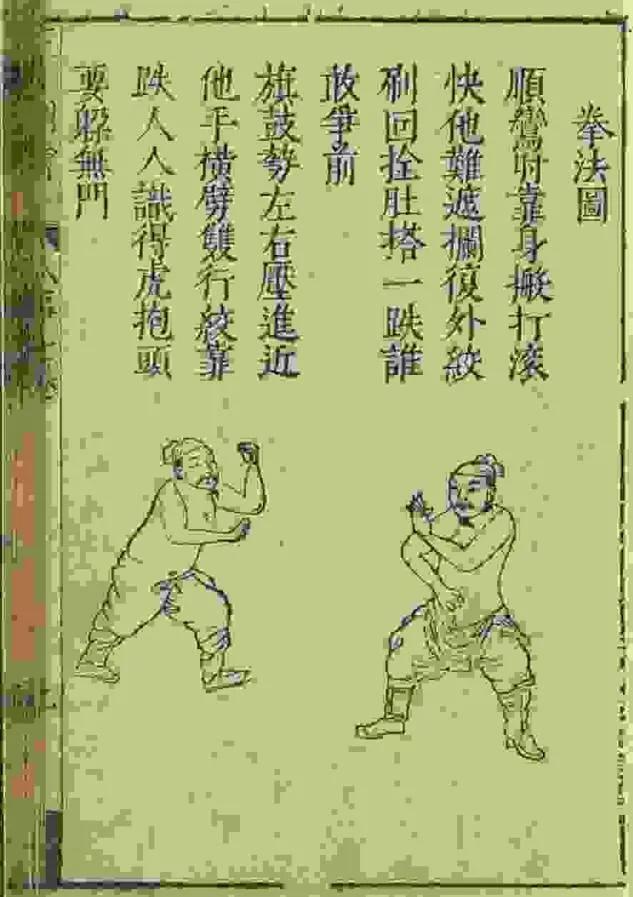 拳法圖
順鸞肘靠身搬打滚
快他難遮攔復外絞
刷回拴肚搭一跌誰
敢爭前
旗鼓势左右壓進近
他手横劈雙行絞靠
跌人人識得虎抱頭
要躱無門